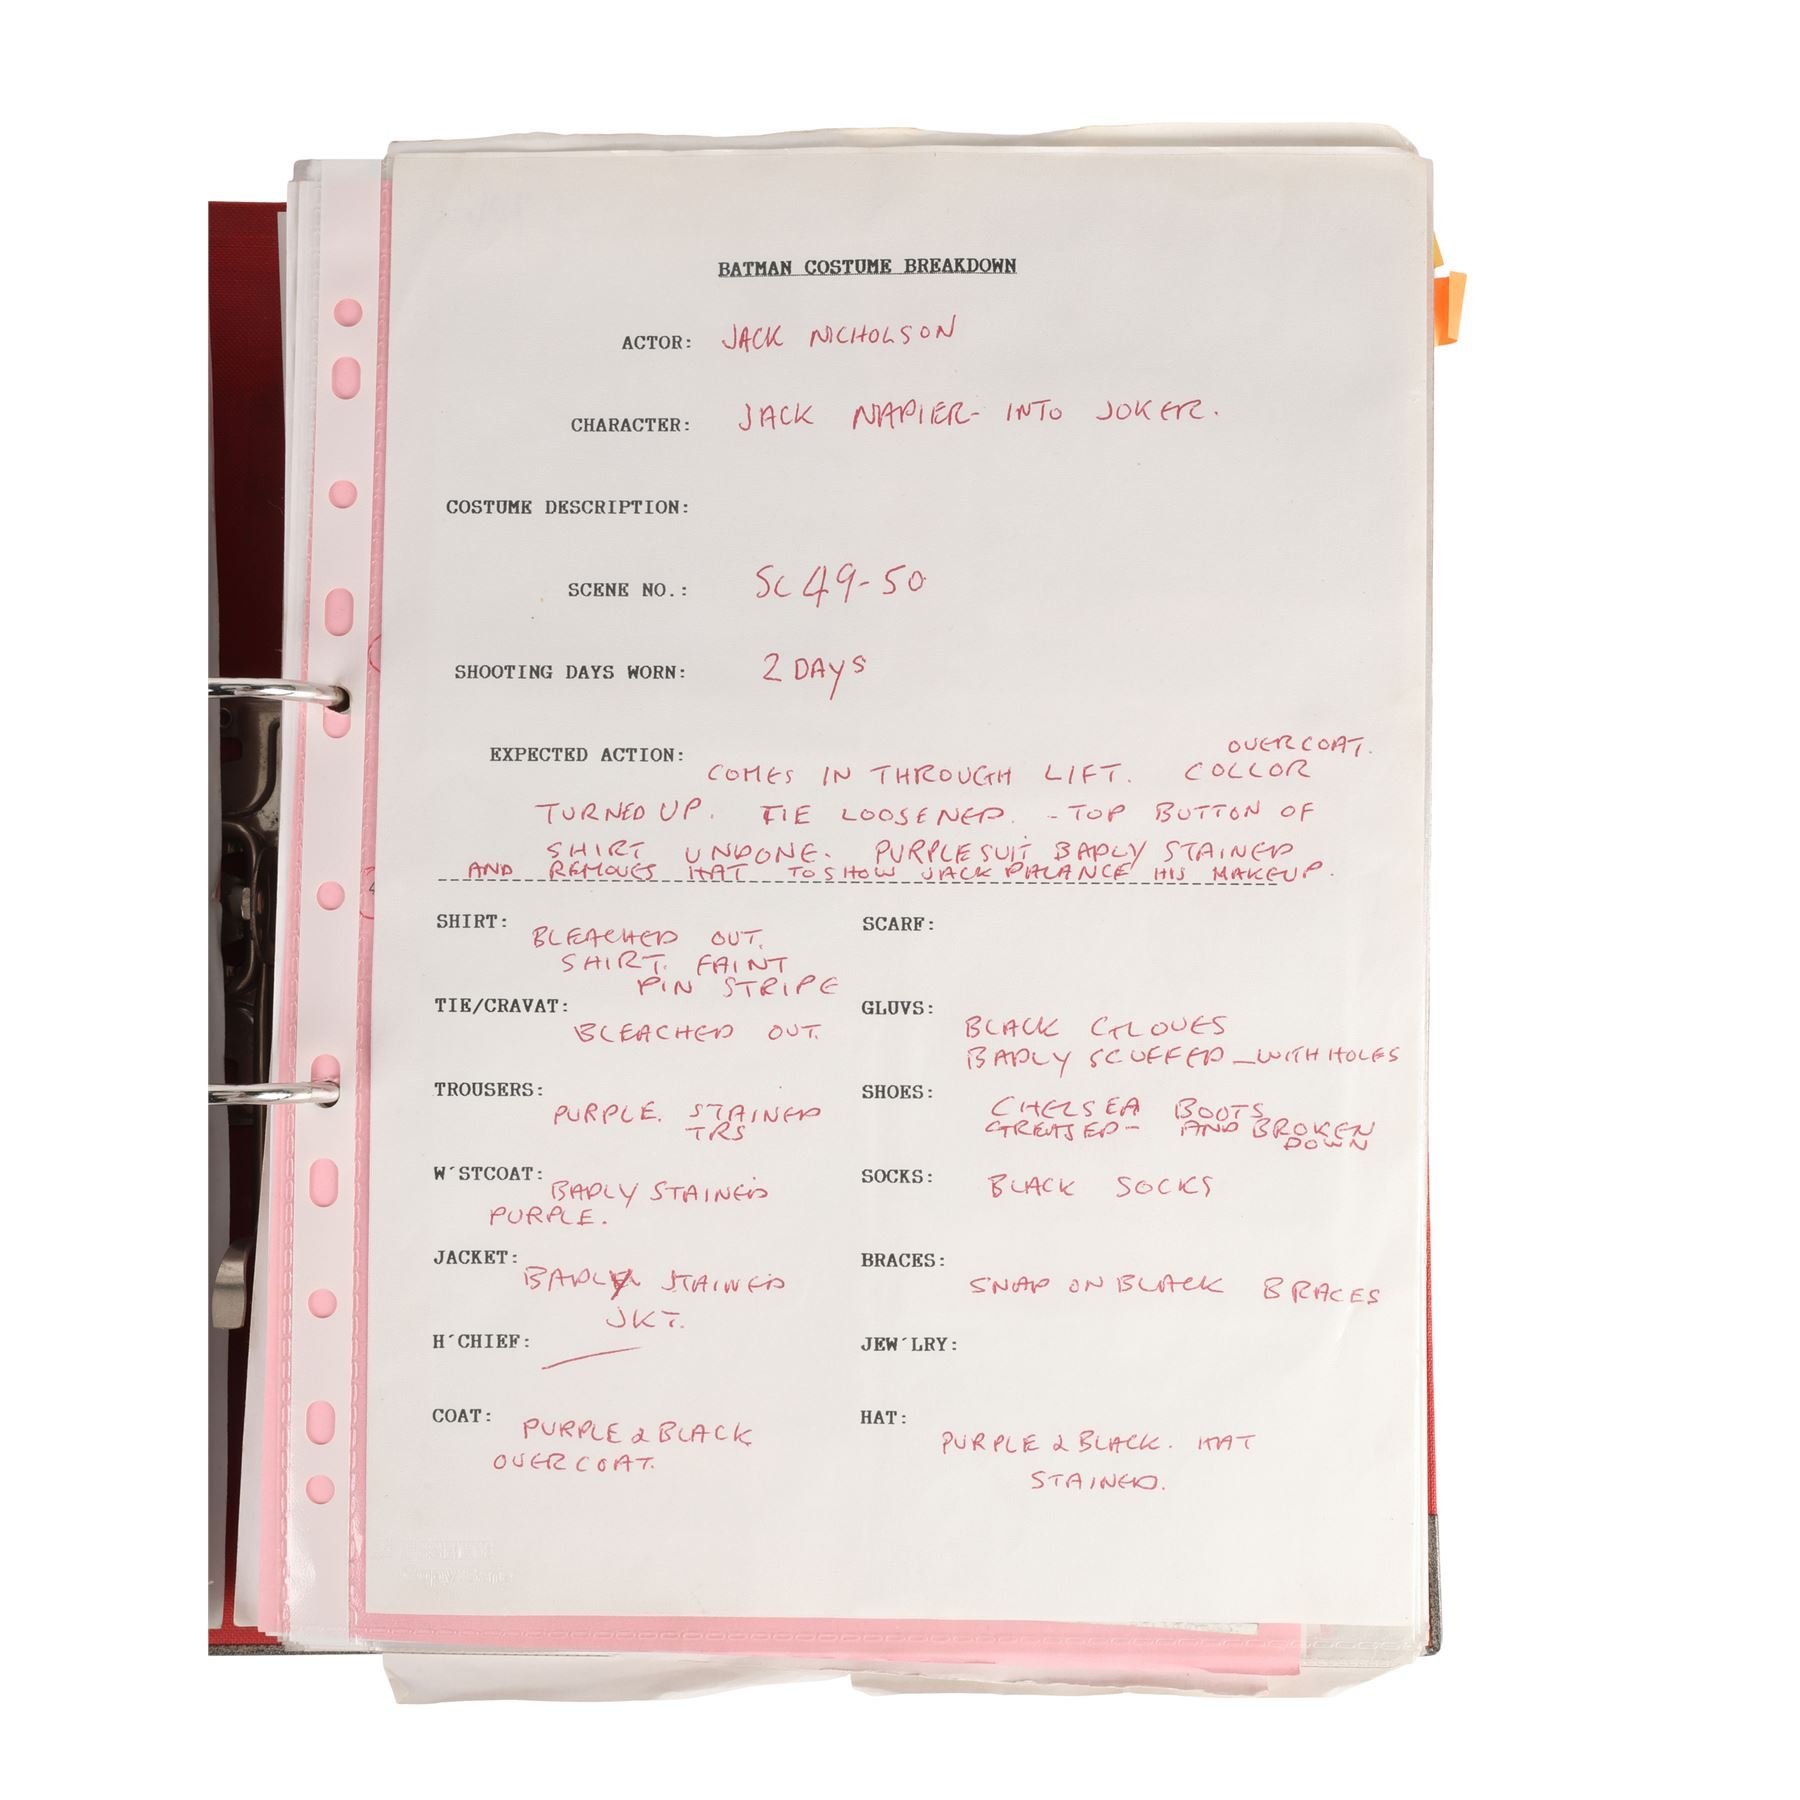 BATMAN COSTUME BREAKDOWN
ACTOR: JACK NICHOLSON
CHARACTER: JACK NAPIER- INTO JOKER.
COSTUME DESCRIPTION:
SCENE NO.: SC 49-50
SHOOTING DAYS WORN: 2 DAYS
EXPECTED ACTION:
OVERCOAT.
COMES IN THROUGH LIFT. COLLOR
TURNED UP. TIE LOOSENED. - TOP BUTTON OF
SHIRT UNDONE. PURPLE SUIT BADLY STAINED
AND REMOVES HAT TO SHOW JACK PALANCE HIS MAKEUP.
SHIRT: BLEACHED OUT.
SHIRT. FAINT
PIN STRIPE
SCARF:
TIE/CRAVAT:
BLEACHED OUT.
GLUVS:
BLACK GLOVES
BADLY SCUFFED - WITH HOLES
TROUSERS:
PURPLE. STAINED
TRS
SHOES: CHELSEA BOOTS
GREASED - AND BROKEN
DOWN
W´STCOAT: BADLY STAINED
PURPLE.
SOCKS: BLACK SOCKS
JACKET:
BADLY STAINED
JKT.
BRACES:
SNAP ON BLACK BRACES
H´CHIEF:
JEW´LRY:
COAT: PURPLE & BLACK
OVERCOAT.
HAT:
PURPLE & BLACK. HAT
STAINED.